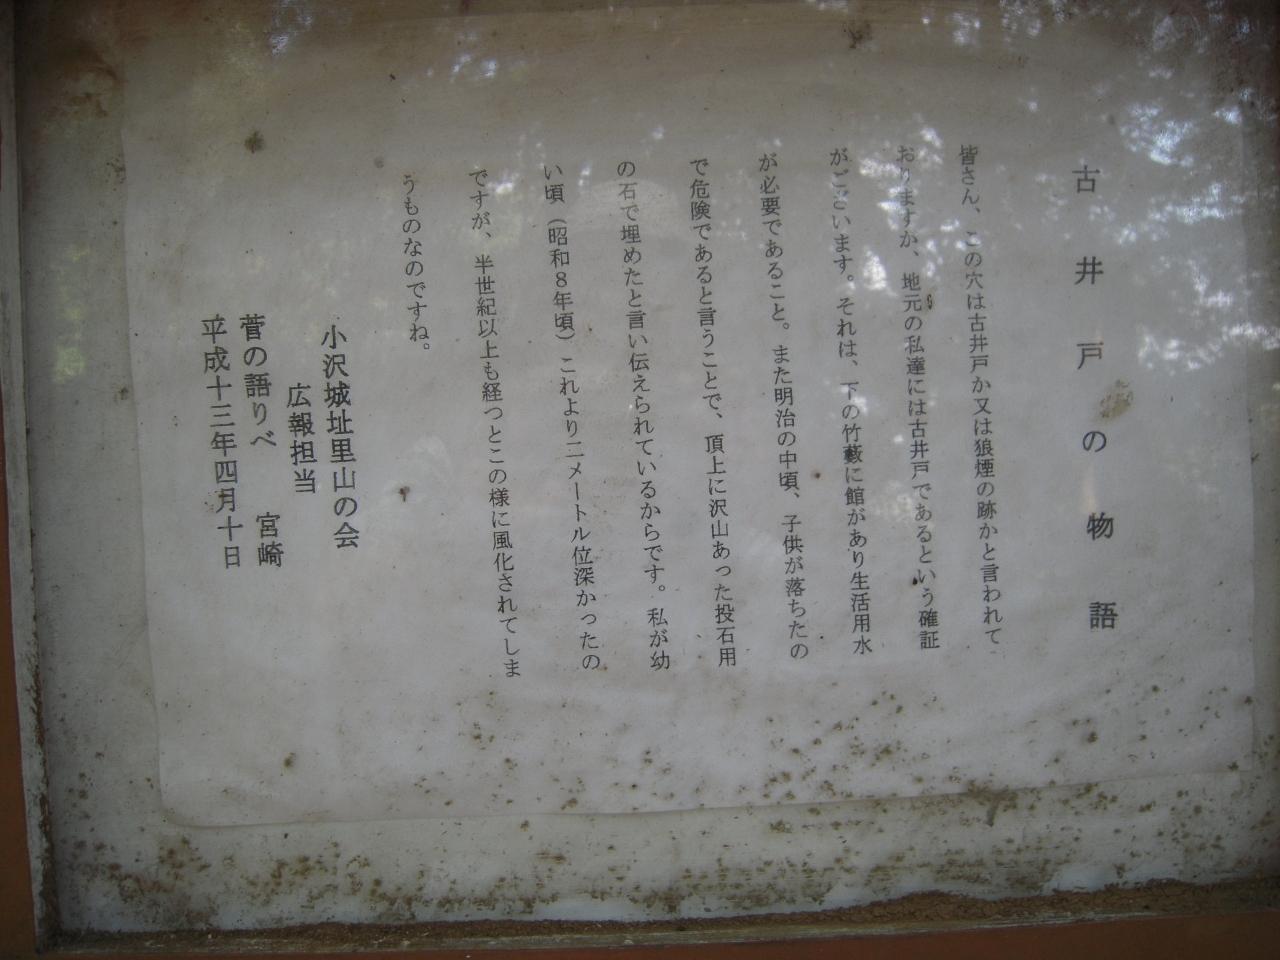 古井戸の物語
皆さん、この穴は古井戸か又は狼煙の跡かと言われて
おりますが、地元の私達には古井戸であるという確証
がございます。それは、下の竹藪に館があり生活用水
が必要であること。また明治の中頃、子供が落ちたの
で危険であると言うことで、頂上に沢山あった投石用
の石で埋めたと言い伝えられているからです。私が幼
い頃（昭和8年頃）これより二メートル位深かったの
ですが、半世紀以上も経つとこの様に風化されてしま
うものなのですね。
小沢城址里山の会
広報担当
菅の語りべ　宮崎
平成十三年四月十日